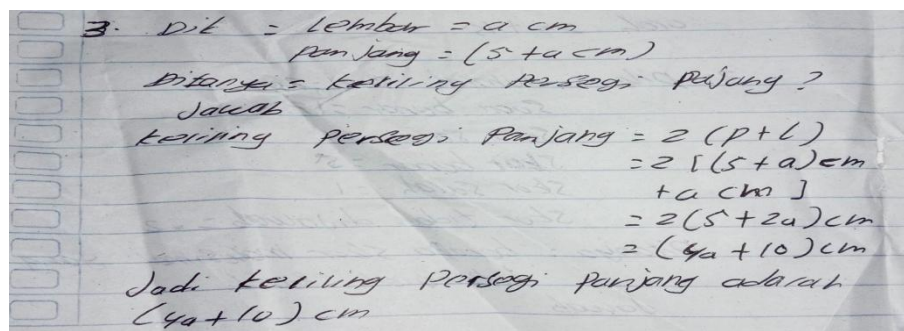 3. Dik = Lembar = a cm
Panjang = (5 + a cm)
Ditanya = keliling Persegi Pajang ?
Jawab
keliling Persegi Panjang = 2 (P + L)
= 2 [(5 + a) cm
+ a cm ]
= 2 (5 + 2a) cm
= (4a + 10) cm
Jadi keliling Persegi Panjang adarah
(4a + 10) cm